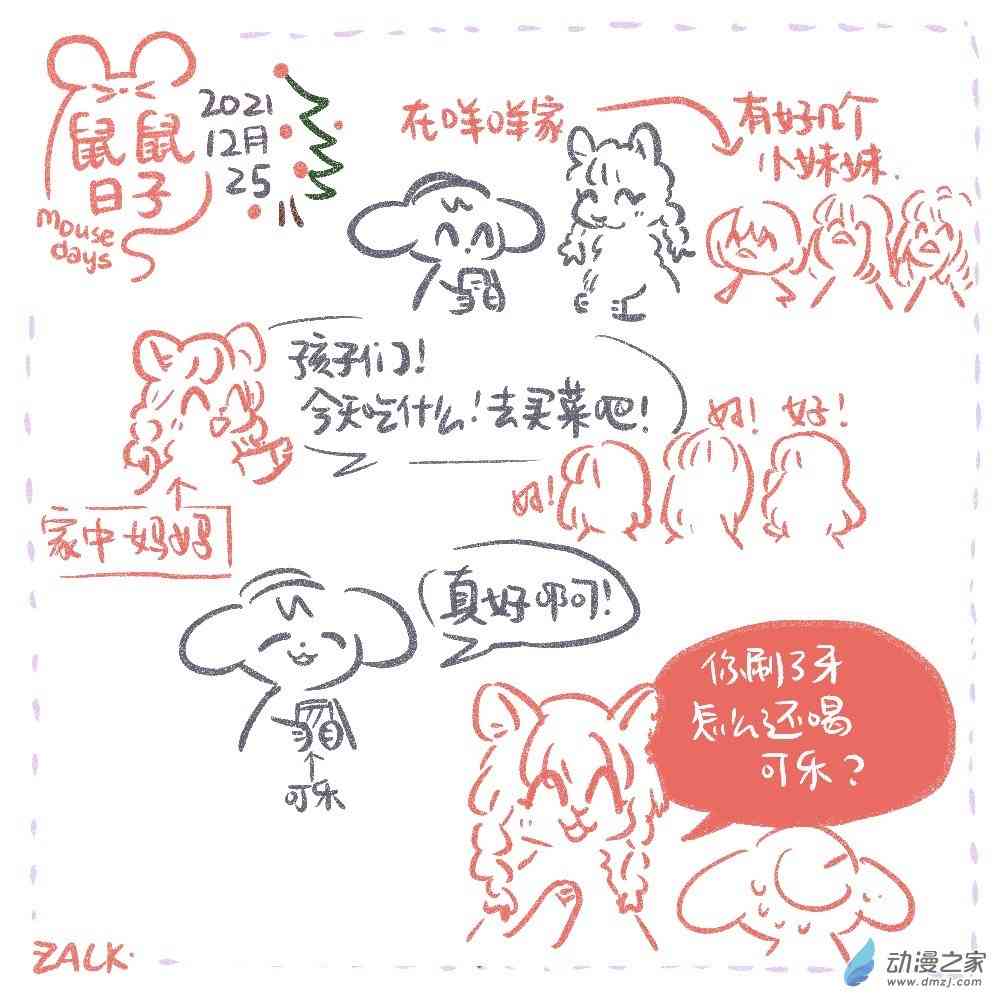 鼠鼠
日子
mouse
days
2021
12月
25
在咩咩家
有好几个
小妹妹.
孩子们!
今天吃什么!去买菜吧!
好!
好!
好!
家中妈妈
真好啊!
可乐
你刷了牙
怎么还喝
可乐?
ZALK.
动漫之家
www.dmzj.com